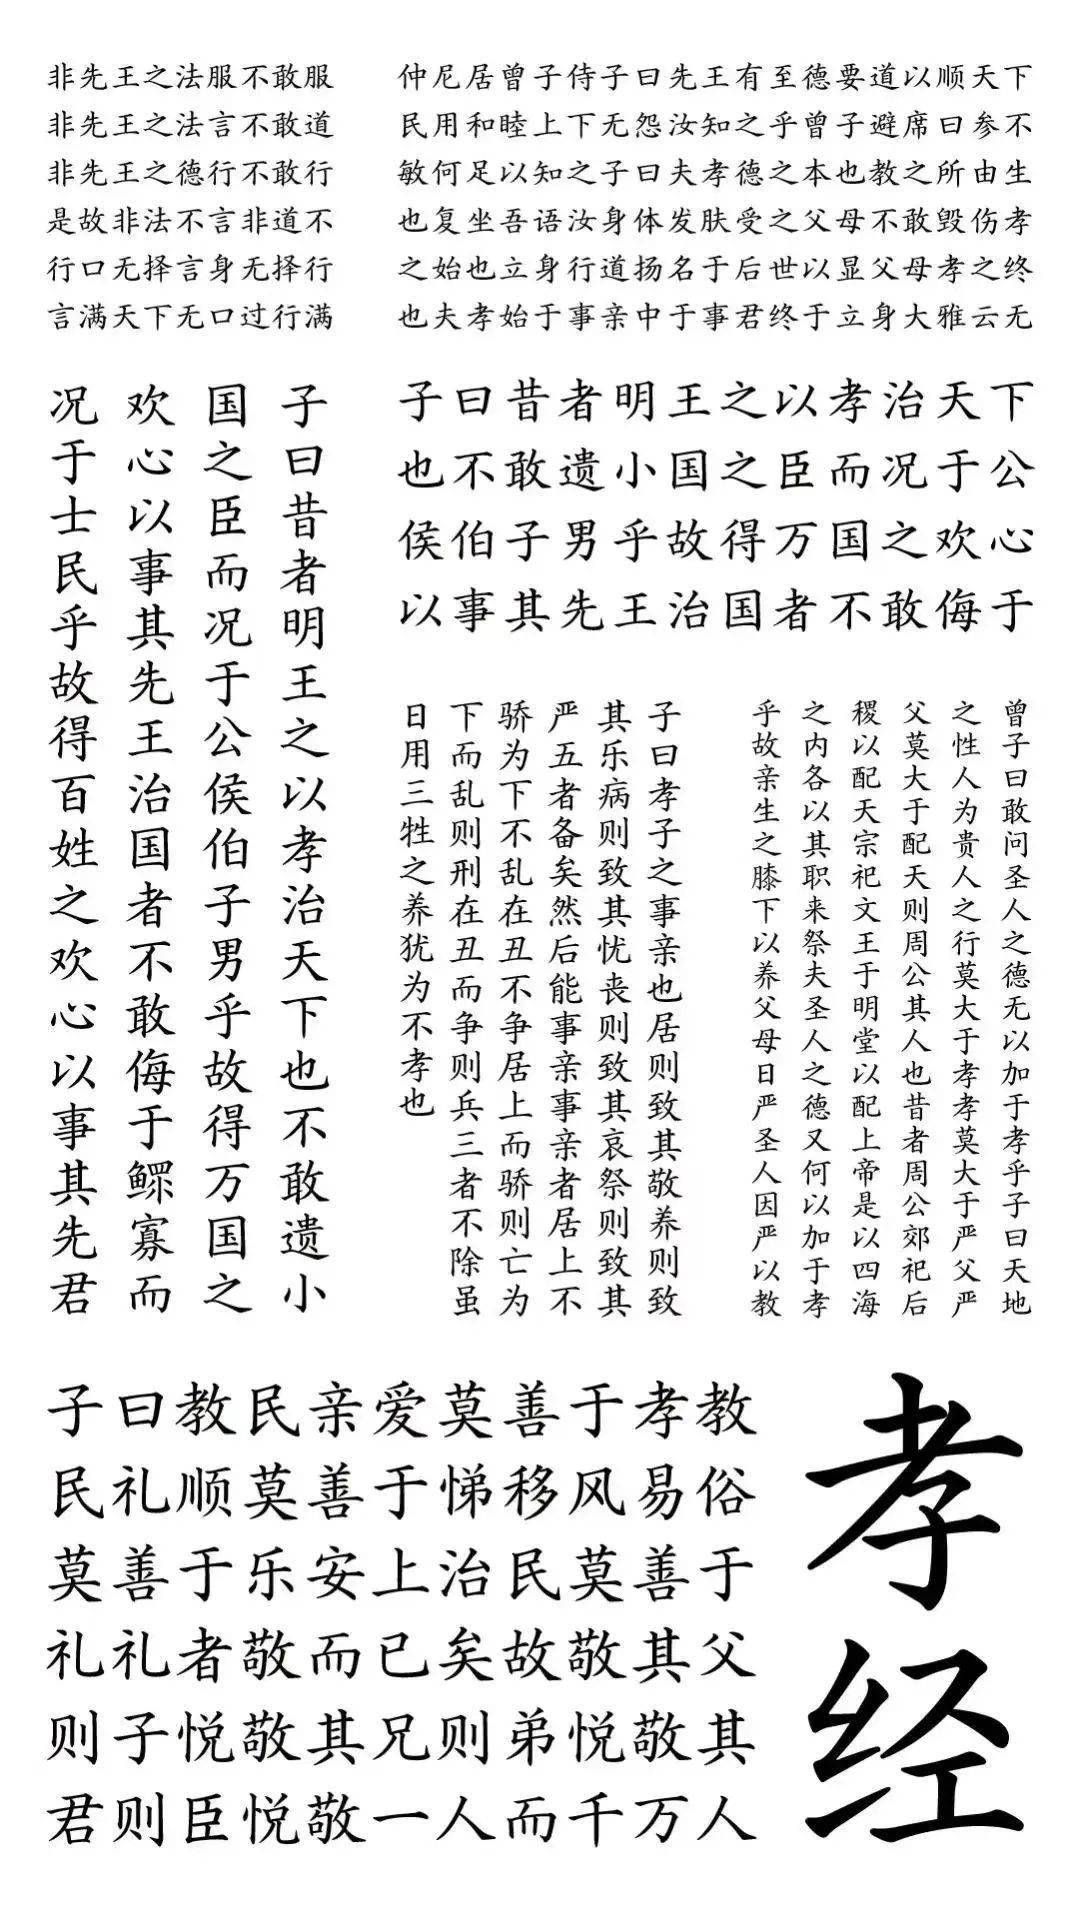 非先王之法服不敢服
非先王之法言不敢道
非先王之德行不敢行
是故非法不言非道不
行口无择言身无择行
言满天下无口过行满
仲尼居曾子侍子曰先王有至德要道以顺天下
民用和睦上下无怨汝知之乎曾子避席曰参不
敏何足以知之子曰夫孝德之本也教之所由生
也复坐吾语汝身体发肤受之父母不敢毁伤孝
之始也立身行道扬名于后世以显父母孝之终
也夫孝始于事亲中于事君终于立身大雅云无
子曰昔者明王之以孝治天下也不敢遗小
国之臣而况于公侯伯子男乎故得万国之
欢心以事其先王治国者不敢侮于鳏寡而
况于士民乎故得百姓之欢心以事其先君
子曰昔者明王之以孝治天下
也不敢遗小国之臣而况于公
侯伯子男乎故得万国之欢心
以事其先王治国者不敢侮于
子曰孝子之事亲也居则致其敬养则致
其乐病则致其忧丧则致其哀祭则致其
严五者备矣然后能事亲事亲者居上不
骄为下不乱在丑不争居上而骄则亡为
下而乱则刑在丑而争则兵三者不除虽
日用三牲之养犹为不孝也
曾子曰敢问圣人之德无以加于孝乎子曰天地
之性人为贵人之行莫大于孝孝莫大于严父严
父莫大于配天则周公其人也昔者周公郊祀后
稷以配天宗祀文王于明堂以配上帝是以四海
之内各以其职来祭夫圣人之德又何以加于孝
乎故亲生之膝下以养父母日严圣人因严以教
子曰教民亲爱莫善于孝教
民礼顺莫善于悌移风易俗
莫善于乐安上治民莫善于
礼礼者敬而已矣故敬其父
则子悦敬其兄则弟悦敬其
君则臣悦敬一人而千万人
孝经